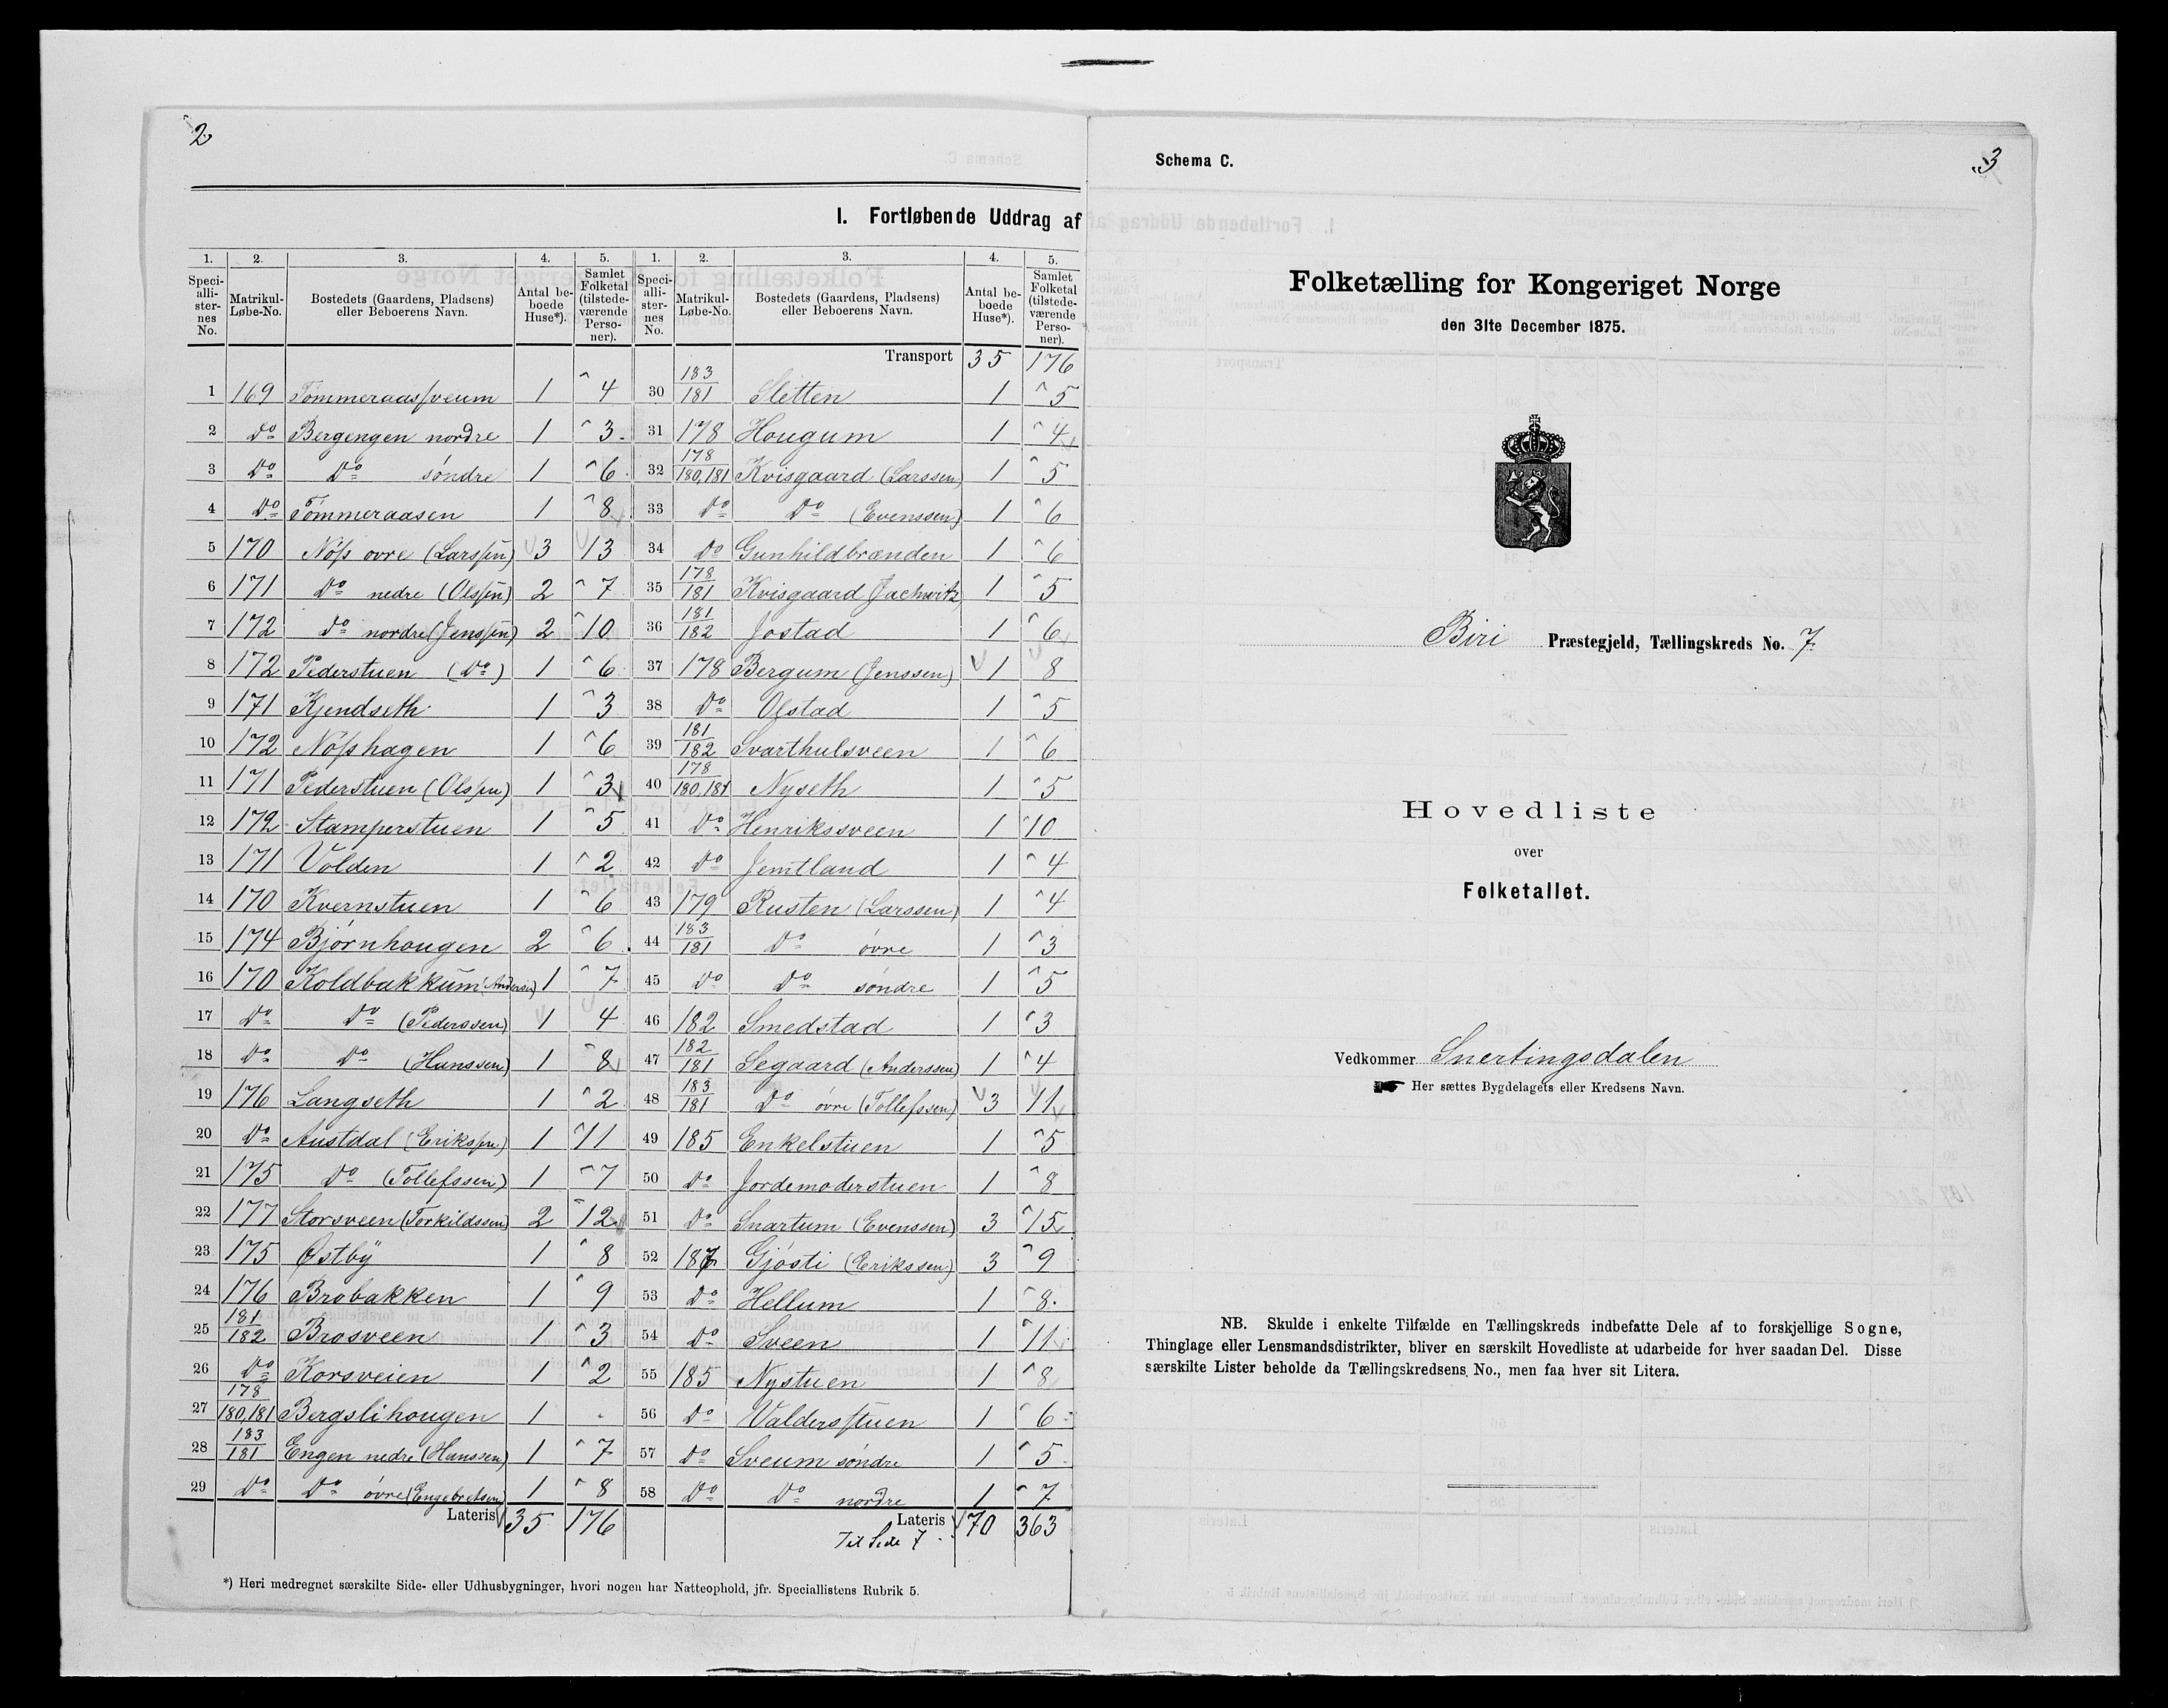 2
I. Fortløbende Uddrag af
1. 2. 3. 4. 5. 1. 2. 3. 4. 5.
Speciallisternes No. Matrikul-Løbe-No. Bostedets (Gaardens, Pladsens) eller Beboerens Navn. Antal beboede Huse*). Samlet Folketal (tilstedeværende Personer). Speciallisternes No. Matrikul-Løbe-No. Bostedets (Gaardens, Pladsens) eller Beboerens Navn. Antal beboede Huse*). Samlet Folketal (tilstedeværende Personer).
1 169 Tømmeraassveum 1 4
2 Do Bergengen nordre 1 3
3 Do Do søndre 1 6
4 Do Tømmeraasen 1 8
5 170 Nøss øvre (Larssen) 3 13
6 171 Do nedre (Olssen) 2 7
7 172 Do nordre (Jenssen) 2 10
8 172 Pederstuen (Do) 1 6
9 171 Kjendseth 1 3
10 172 Nøsshagen 1 6
11 171 Pederstuen (Olssen) 1 3
12 172 Stamperstuen 1 5
13 171 Volden 1 2
14 170 Kvernstuen 1 6
15 174 Bjørnhougen 2 6
16 170 Koldbakkum (Andersen) 1 7
17 Do Do (Pederssen) 1 4
18 Do Do (Hanssen) 1 8
19 176 Langseth 1 2
20 Do Austdal (Erikssen) 1 11
21 175 Do (Tollefssen) 1 7
22 177 Storsveen (Torkildssen) 2 12
23 175 Østby 1 8
24 176 Brobakken 1 9
25 181/182 Brosveen 1 3
26 Do Korsveien 1 2
27 178/180,181 Bergslihougen 1 -
28 183/181 Engen nedre (Hanssen) 1 7
29 Do Do øvre (Engebretsen) 1 8
Lateris 35 176
Transport 35 176
30 183/181 Sletten 1 5
31 178 Hougum 1 4
32 178/180,181 Kvisgaard (Larssen) 1 5
33 Do Do (Evenssen) 1 6
34 Do Gunhildbrænden 1 6
35 178/181 Kvisgaard Jachwitz 1 5
36 181/182 Jostad 1 6
37 178 Bergum (Jenssen) 1 8
38 Do Olstad 1 5
39 181/182 Svarthulsveen 1 6
40 178/180,181 Nyseth 1 5
41 Do Henrikssveen 1 10
42 Do Jemtland 1 4
43 179 Rusten (Larssen) 1 4
44 183/181 Do øvre 1 3
45 Do Do søndre 1 5
46 182 Smedstad 1 3
47 182/181 Segaard (Anderssen) 1 4
48 183/181 Do øvre (Tollefssen) 3 11
49 185 Enkelstuen 1 5
50 Do Jordemoderstuen 1 8
51 Do Snartum (Evenssen) 3 15
52 187 Gjøsti (Erikssen) 3 9
53 Do Hellum 1 8
54 Do Sveen 1 11
55 185 Nystuen 1 8
56 Do Valdersstuen 1 6
57 Do Sveum søndre 1 5
58 Do Do nordre 1 7
Lateris 70 363
Til Side 7
*) Heri medregnet særskilte Side- eller Udhusbygninger, hvori nogen har Natteophold, jfr. Speciallistens Rubrik 5.
Schema C.
3
Folketælling for Kongeriget Norge
den 31te December 1875.
Biri Præstegjeld, Tællingskreds No. 7
Hovedliste
over
Folketallet.
Vedkommer Snertingsdalen
Her sættes Bygdelagets eller Kredsens Navn.
NB. Skulde i enkelte Tilfælde en Tællingskreds indbefatte Dele af to forskjellige Sogne,
Thinglage eller Lensmandsdistrikter, bliver en særskilt Hovedliste at udarbeide for hver saadan Del. Disse
særskilte Lister beholde da Tællingskredsens No., men faa hver sit Litera.